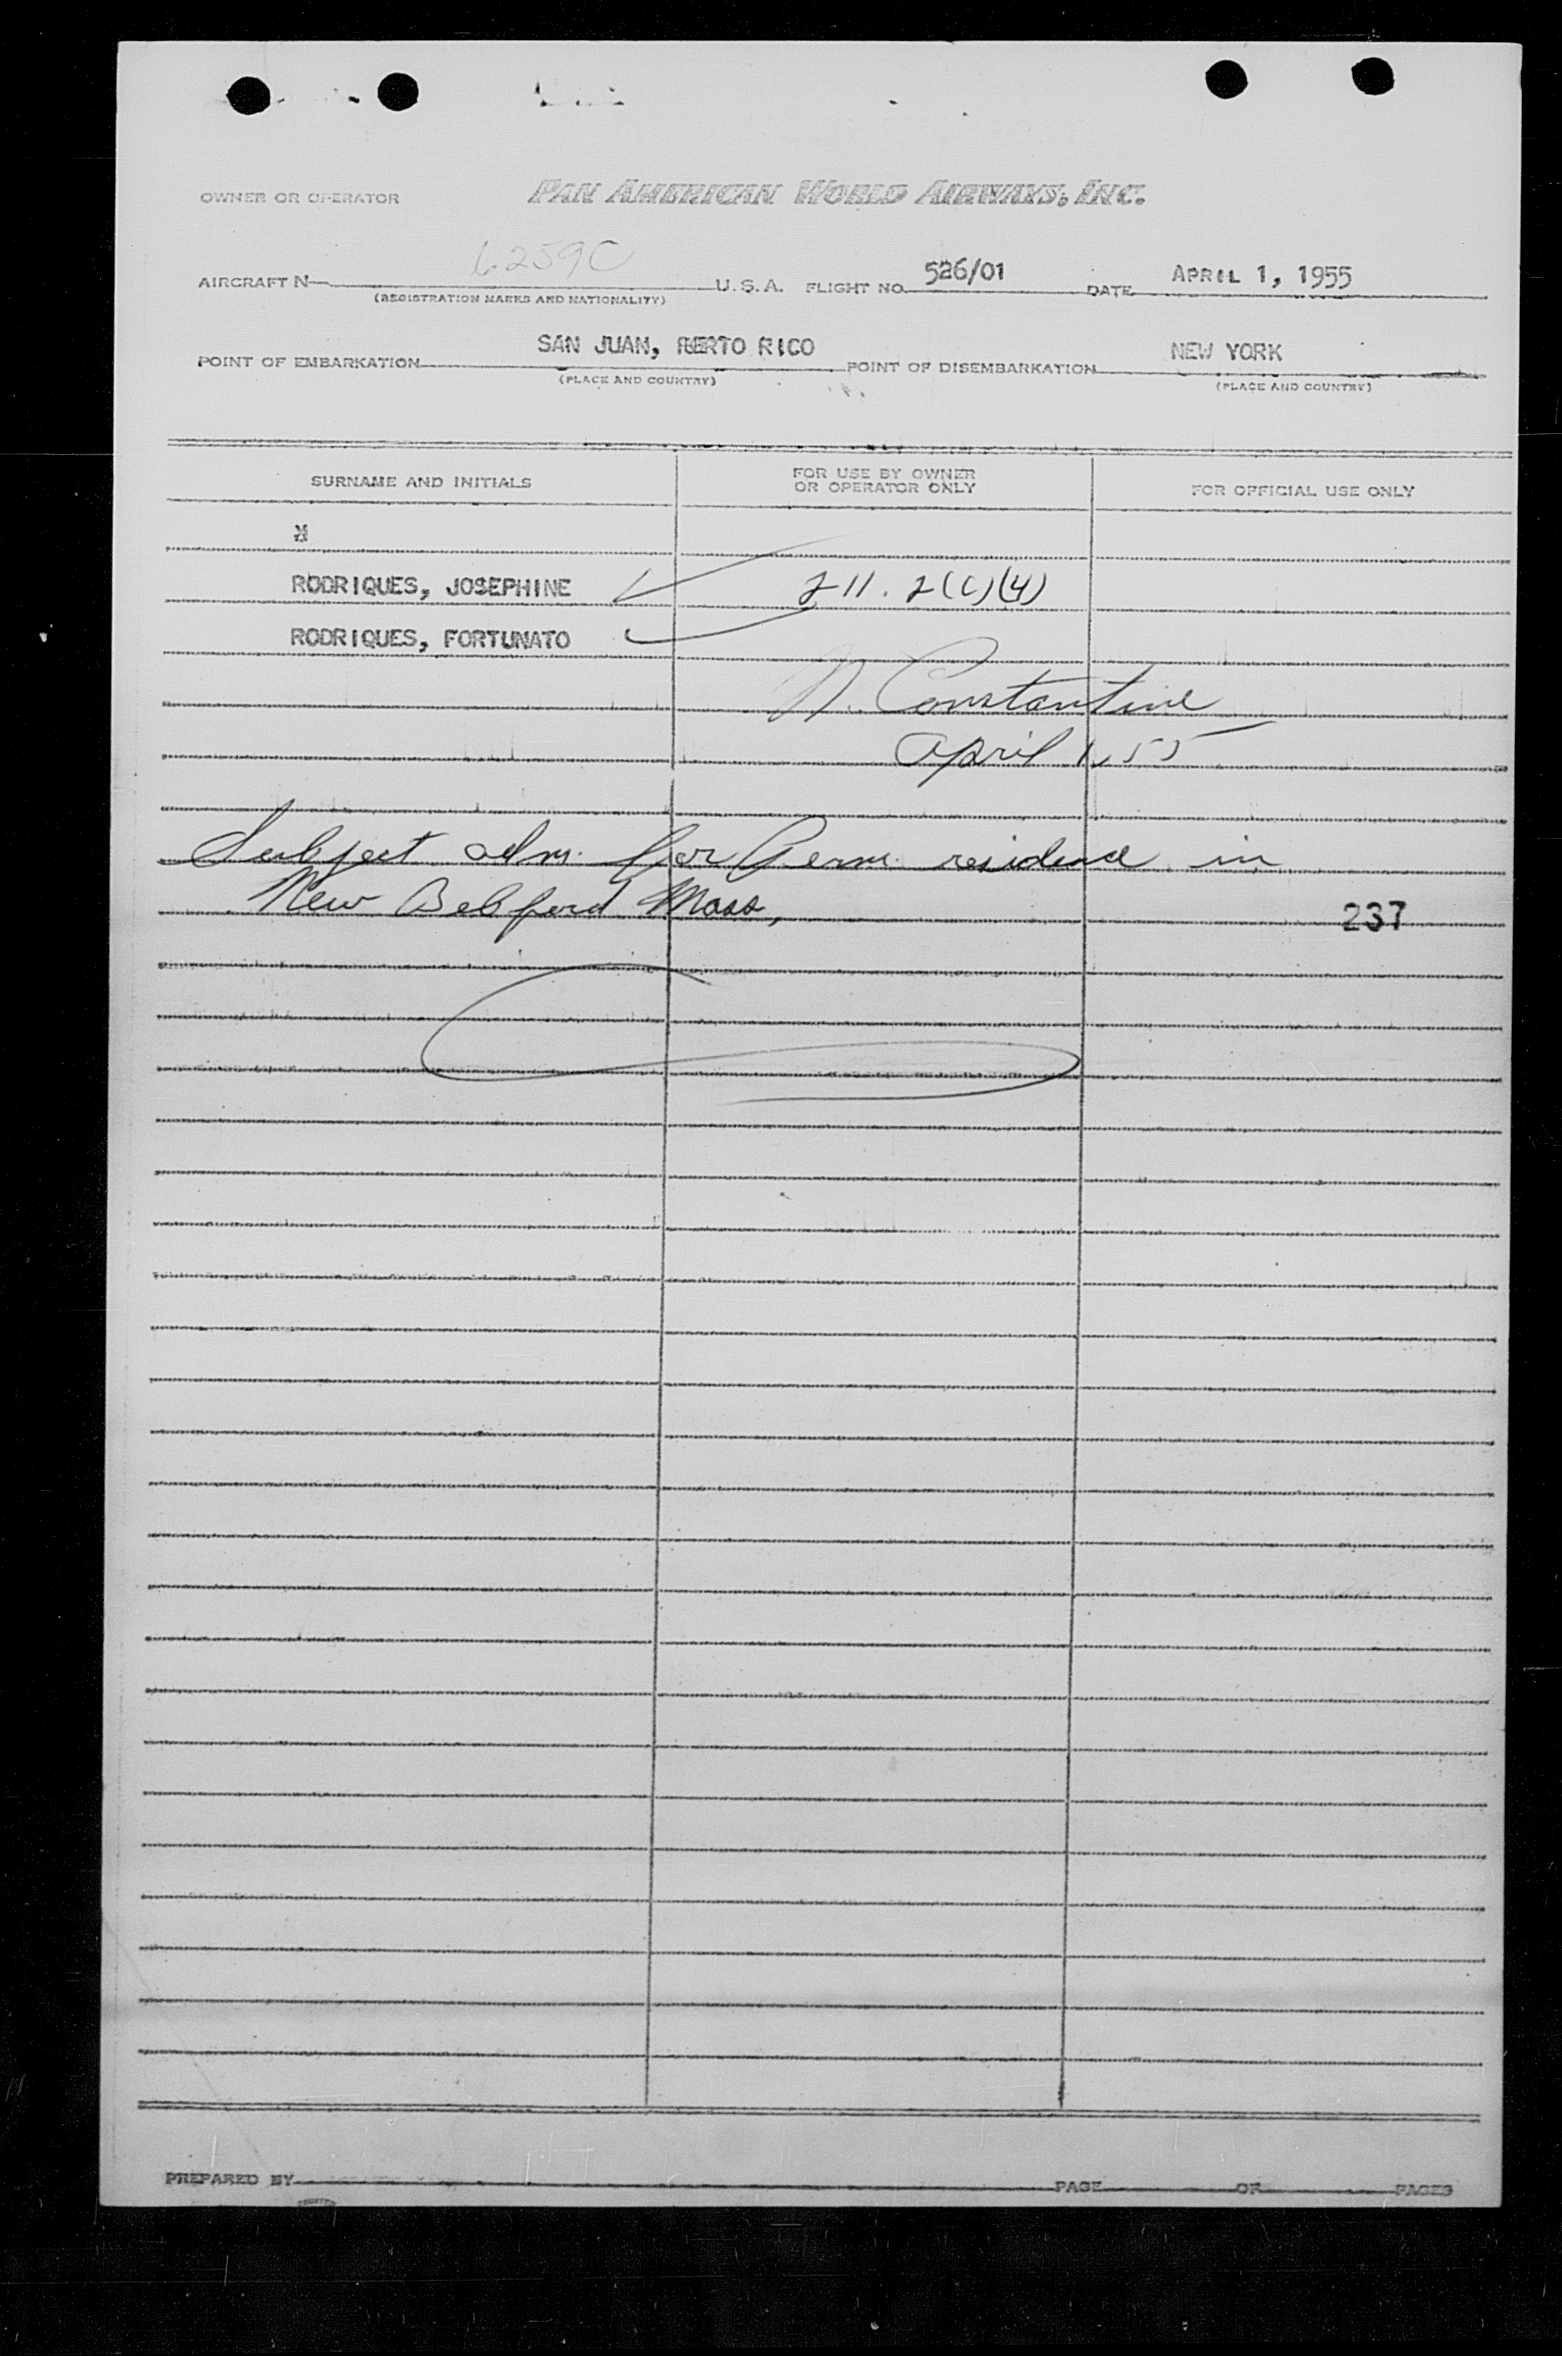 OWNER OR OPERATOR PAN AMERICAN WORLD AIRWAYS, INC.
AIRCRAFT N 6259C U.S.A. FLIGHT NO. 526/01 DATE APRIL 1, 1955
(REGISTRATION MARKS AND NATIONALITY)
POINT OF EMBARKATION SAN JUAN, PUERTO RICO POINT OF DISEMBARKATION NEW YORK
(PLACE AND COUNTRY) (PLACE AND COUNTRY)
SURNAME AND INITIALS FOR USE BY OWNER OR OPERATOR ONLY FOR OFFICIAL USE ONLY
RODRIQUES, JOSEPHINE 211.2(c)(4)
RODRIQUES, FORTUNATO
N. Constantine
April 1, 55
Subject adm. for Perm. residence in
New Bedford Mass,
237
PREPARED BY PAGE OF PAGES